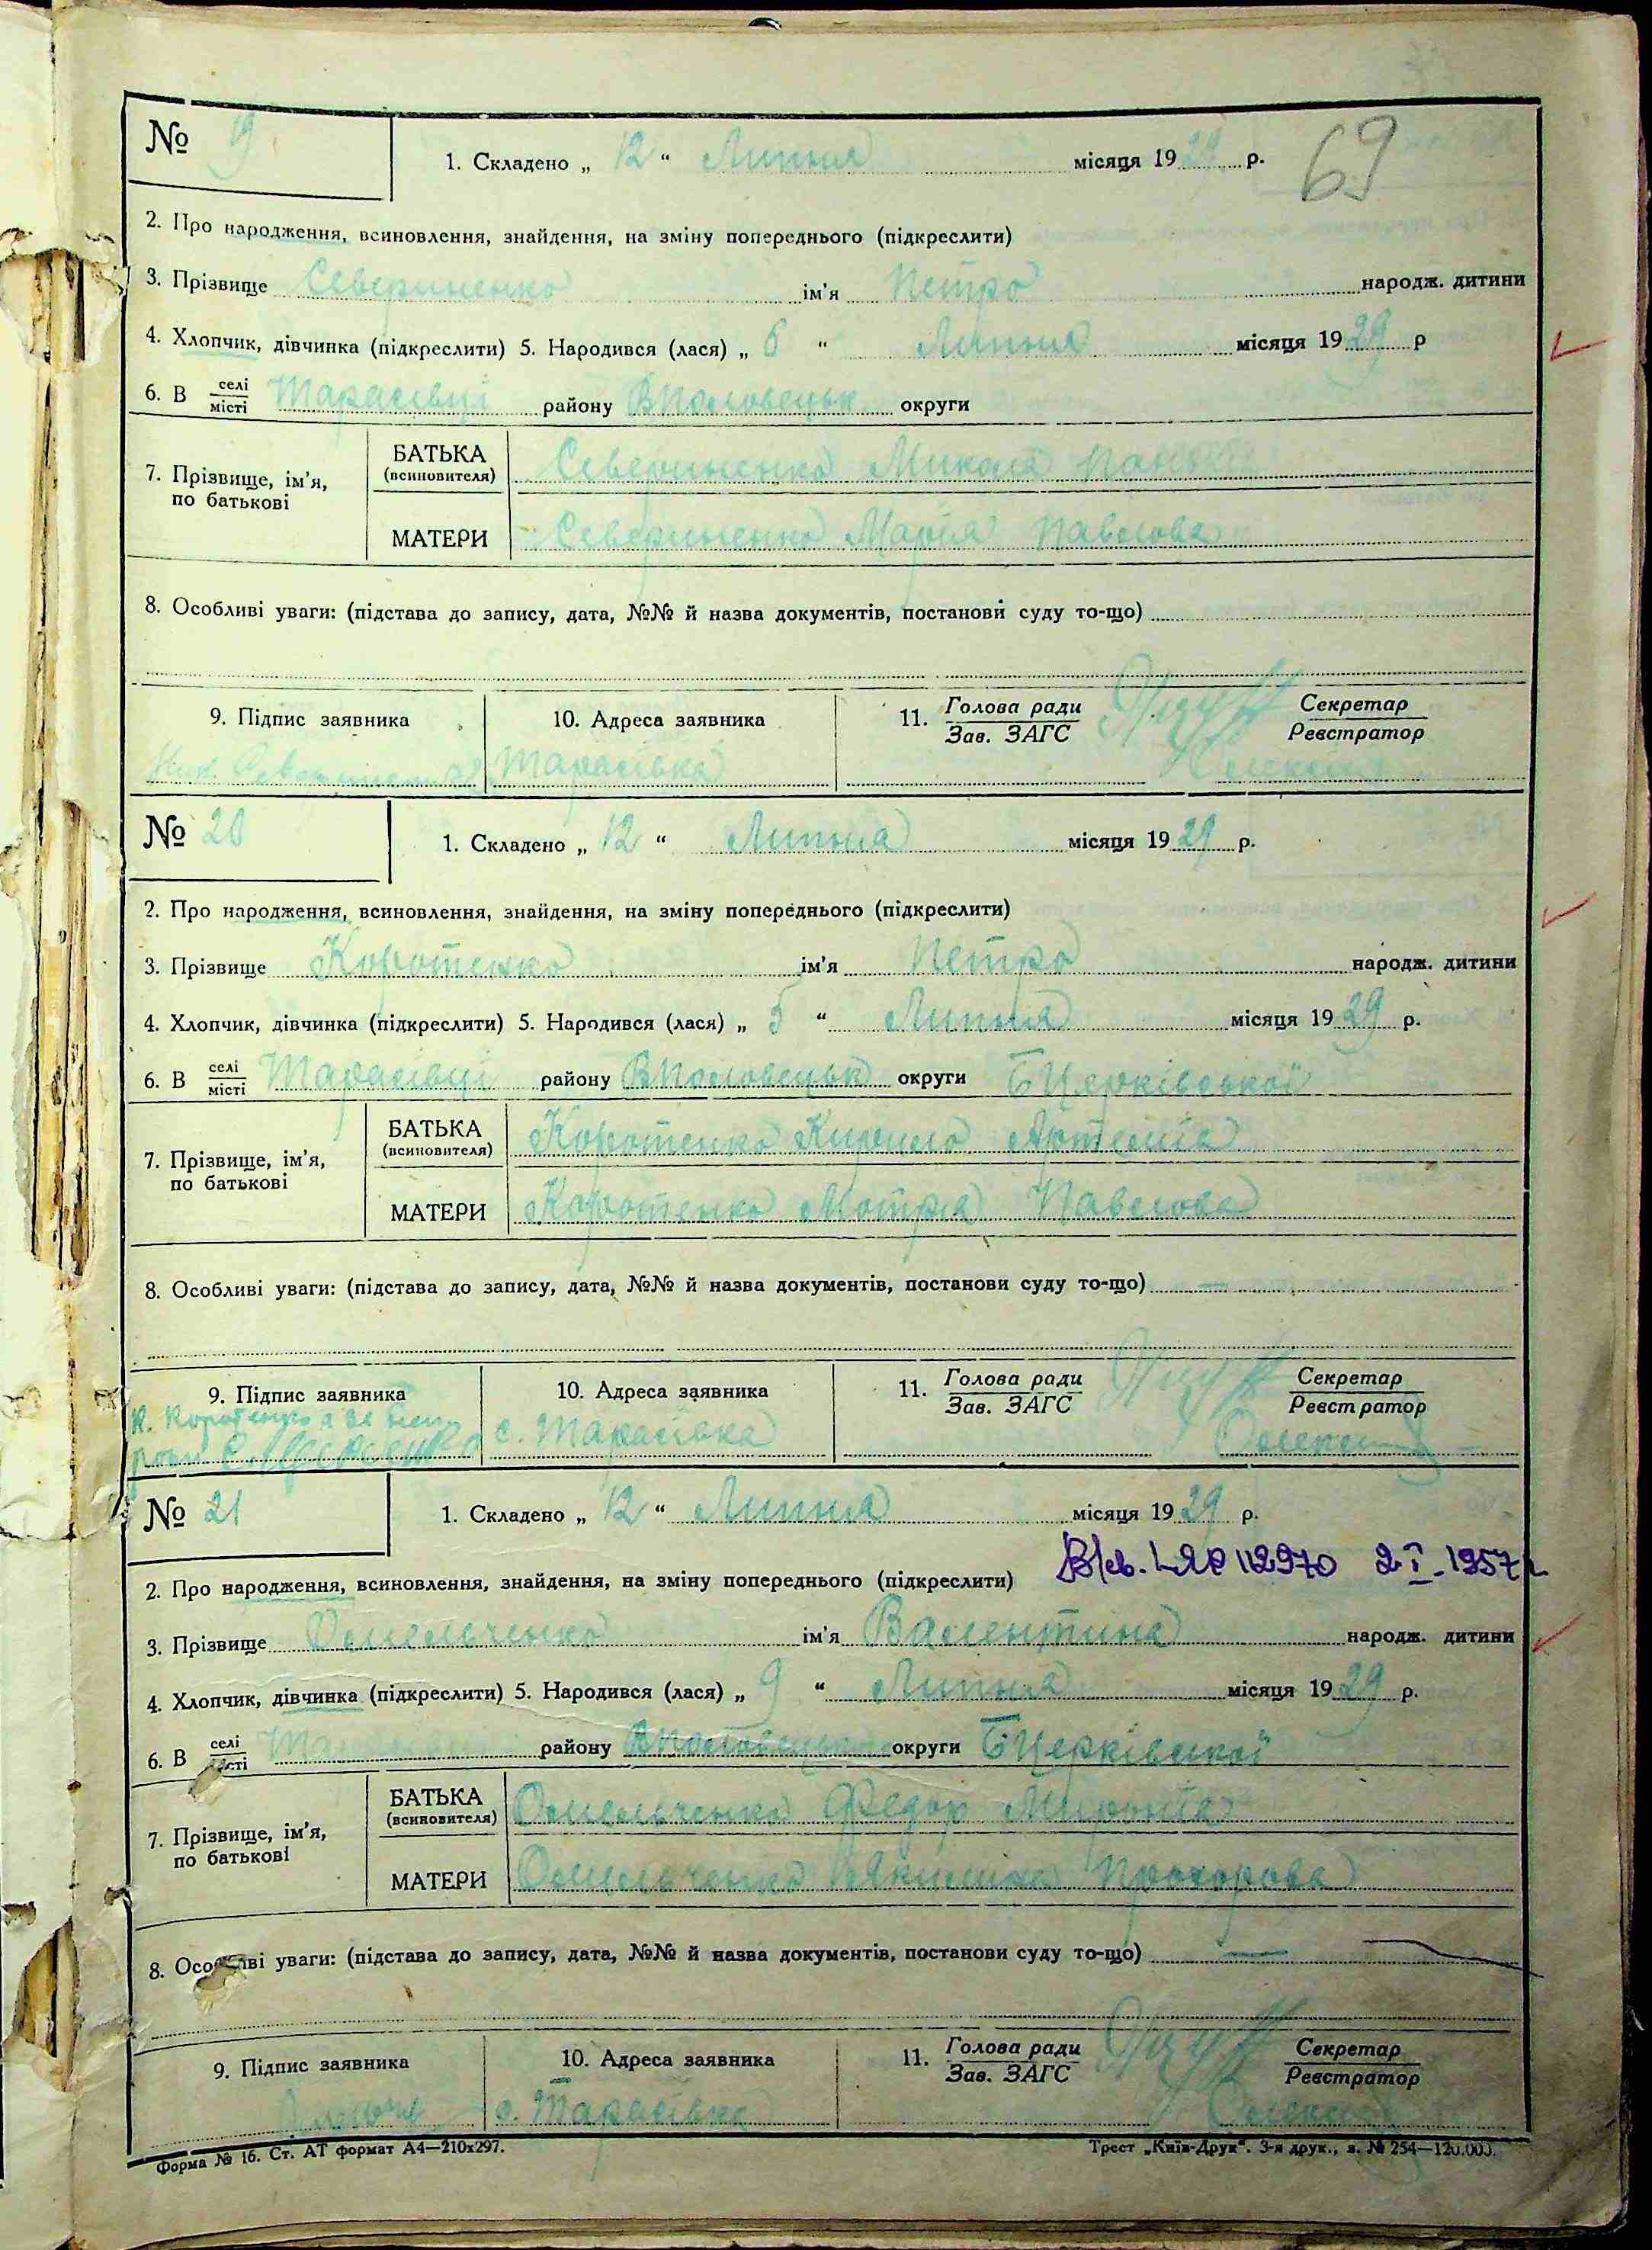 69
№ 19
1. Складено „ 12 “ Липня місяця 1929 р.
2. Про народження, всиновлення, знайдення, на зміну попереднього (підкреслити)
3. Прізвище Севериненко ім'я Петро народж. дитини
4. Хлопчик, дівчинка (підкреслити) 5. Народився (лася) „ 6 “ Липня місяця 1929 р
6. В селі/місті Тарасівці району ВПоловецьк округи
7. Прізвище, ім'я, по батькові
БАТЬКА (всиновителя) Севериненко Микола
МАТЕРИ Севериненко Марія Павлова
8. Особливі уваги: (підстава до запису, дата, №№ й назва документів, постанови суду то-що)
9. Підпис заявника
10. Адреса заявника Тарасівка
11. Голова ради/Зав. ЗАГС Секретар/Реєстратор
№ 20
1. Складено „ 12 “ Липня місяця 1929 р.
2. Про народження, всиновлення, знайдення, на зміну попереднього (підкреслити)
3. Прізвище Коротенко ім'я Петро народж. дитини
4. Хлопчик, дівчинка (підкреслити) 5. Народився (лася) „ 5 “ Липня місяця 1929 р.
6. В селі/місті Тарасівці району ВПоловецьк округи БЦерківської
7. Прізвище, ім'я, по батькові
БАТЬКА (всиновителя) Коротенко Кирило Артемів
МАТЕРИ Коротенко Мотря Павлова
8. Особливі уваги: (підстава до запису, дата, №№ й назва документів, постанови суду то-що) —
9. Підпис заявника К. Коротенко а за неп
10. Адреса заявника с. Тарасівка
11. Голова ради/Зав. ЗАГС Секретар/Реєстратор
№ 21
1. Складено „ 12 “ Липня місяця 1929 р.
12970 2 I-1957
2. Про народження, всиновлення, знайдення, на зміну попереднього (підкреслити)
3. Прізвище Омельченко ім'я Валентина народж. дитини
4. Хлопчик, дівчинка (підкреслити) 5. Народився (лася) „ 9 “ Липня місяця 1929 р.
6. В селі/місті району ВПоловецьк округи БЦерківської
7. Прізвище, ім'я, по батькові
БАТЬКА (всиновителя) Омельченко Федор Миронів
МАТЕРИ Омельченко Якилина Прохорова
8. Особливі уваги: (підстава до запису, дата, №№ й назва документів, постанови суду то-що) —
9. Підпис заявника
10. Адреса заявника с. Тарасівка
11. Голова ради/Зав. ЗАГС Секретар/Реєстратор
Форма № 16. Ст. АТ формат А4—210х297.
Трест „Київ-Друк“. 3-я друк., з. № 254—120.000.